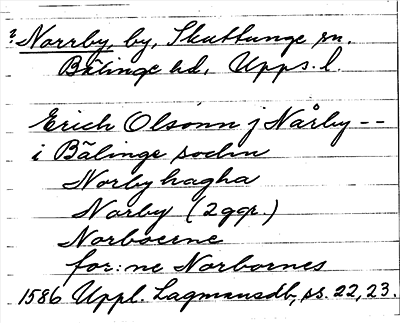 ? Norrby, by, Skuttunge sn.
Bälinge hd, Upps. l.
Erich Olsonn j Nårby --
i Bälinge sochn
Norbyhagha
Norby (2 ggr.)
Norboerne
for:ne Norbornes
1586 Uppl. Lagmansdb, ss. 22, 23.